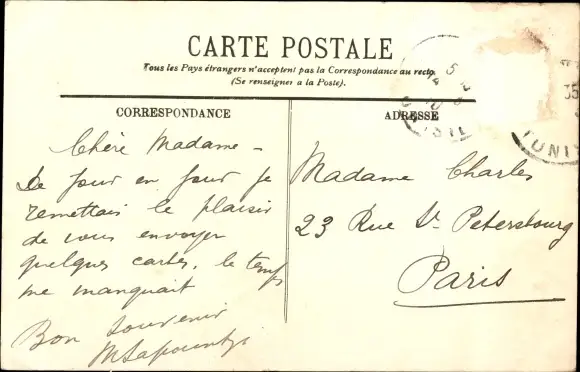 CARTE POSTALE
Tous les Pays étrangers n'acceptent pas la Correspondance au recto
(Se renseigner a la Poste).
CORRESPONDANCE
Chère Madame -
De jour en jour je
remettais le plaisir
de vous envoyer
quelques cartes, le temps
me manquait
Bon souvenir
ADRESSE
Madame Charles
23 Rue St Petersbourg
Paris
TUNIS